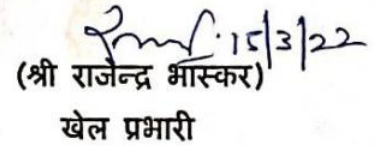 15/3/22
(श्री राजेन्द्र भास्कर)
खेल प्रभारी